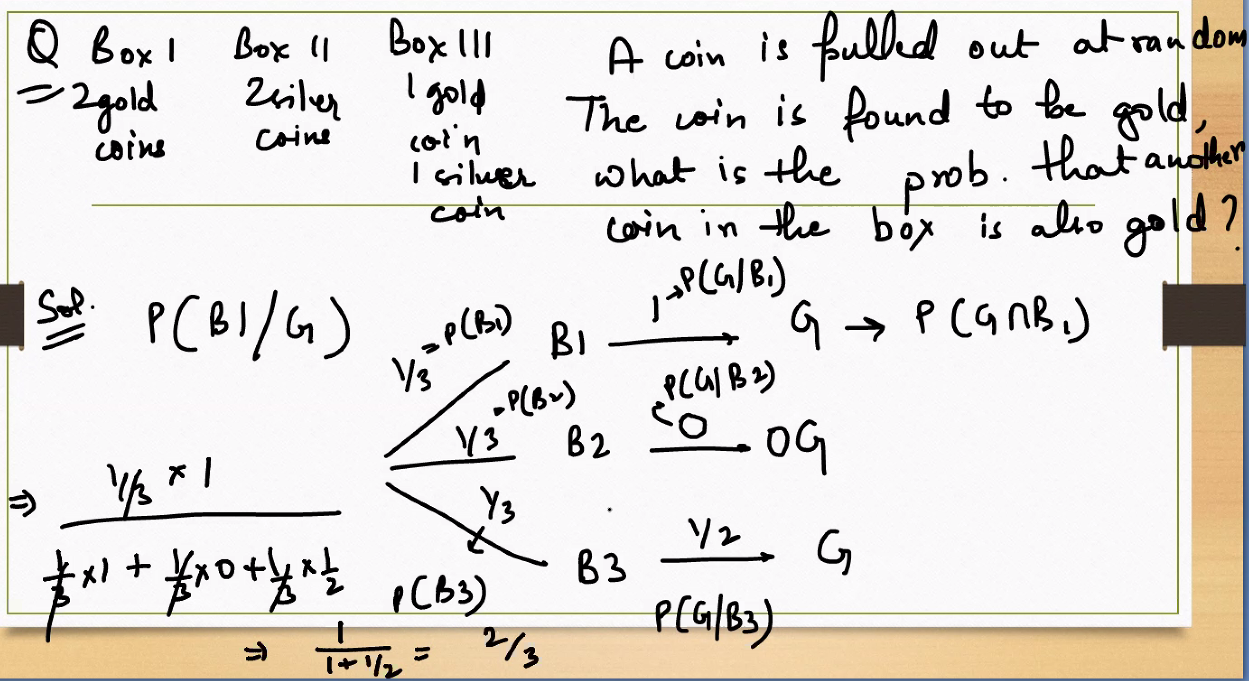 Q Box I Box II Box III
2 gold coins
2 silver coins
1 gold coin
1 silver coin
A coin is pulled out at random
The coin is found to be gold,
what is the prob. that another
coin in the box is also gold?
Sol. P(B1/G)
1/3 = P(B1) B1 1 → P(G/B1) G → P(G∩B1)
1/3 = P(B2) B2 0 P(G/B2) 0G
1/3 P(B3) B3 1/2 P(G/B3) G
⇒ 1/3 × 1
1/3 × 1 + 1/3 × 0 + 1/3 × 1/2
⇒ 1/(1 + 1/2) = 2/3